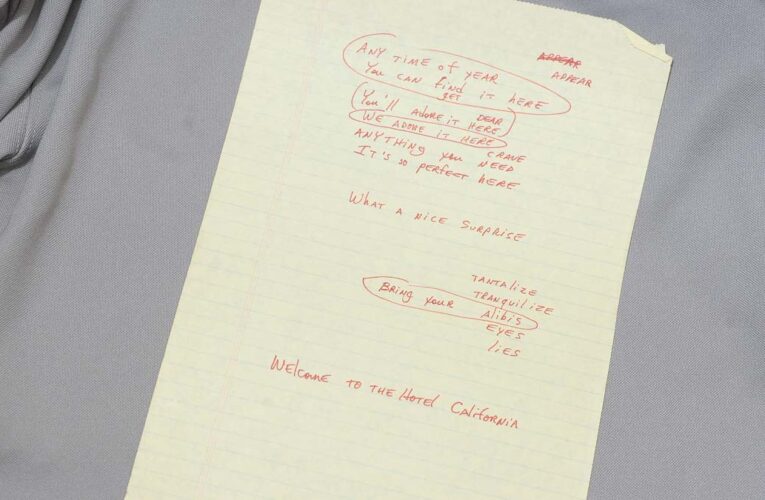 APPEAR
ANY TIME of YEAR
APPEAR
You CAN find it HERE
GET
You'll ADORE it DEAR
HERE
WE ADORE IT HERE
ANYTHING You CRAVE
NEED
IT'S SO PERFECT HERE
WHAT A NICE SURPRISE
TANTALIZE
TRANQUILIZE
BRING YOUR Alibis
EYES
liES
WElcome TO THE HOTEl CAliforNIA